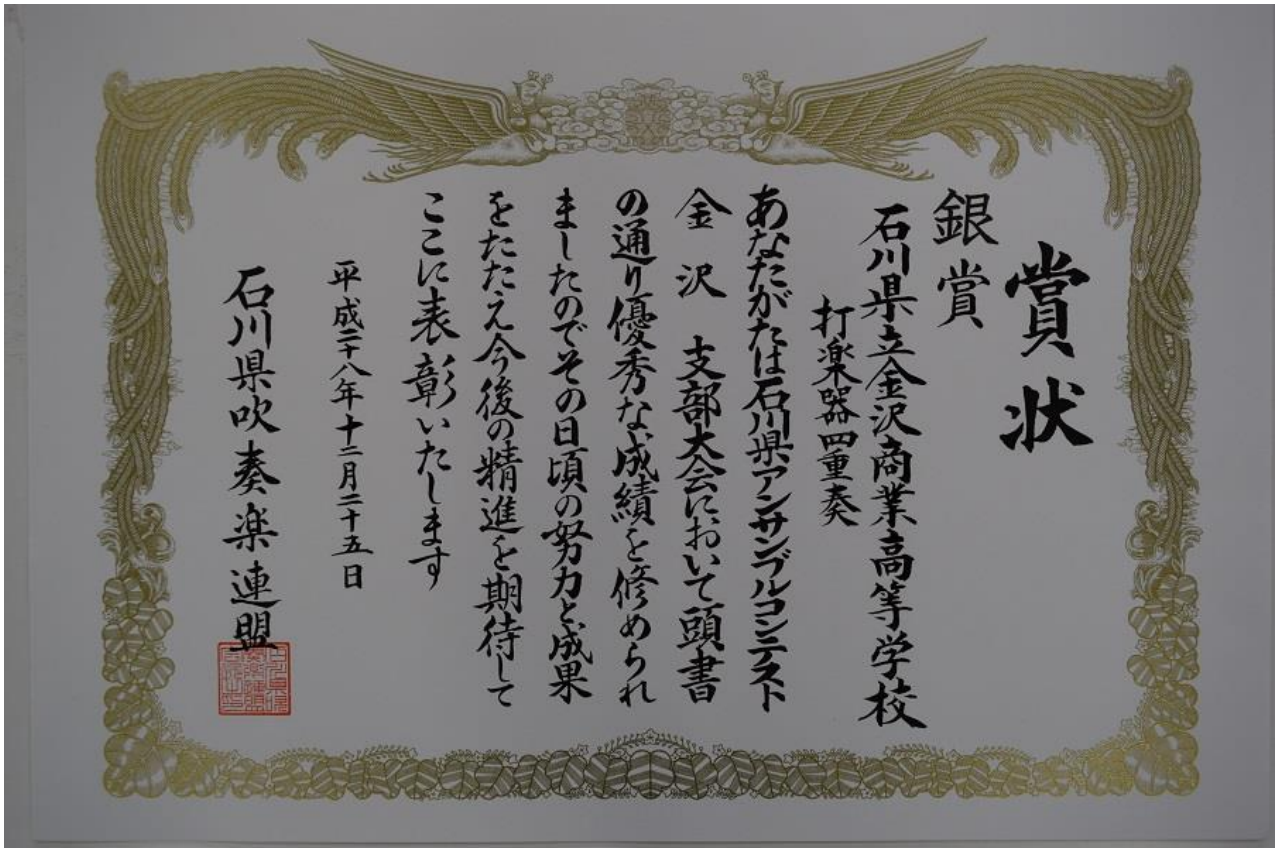 賞状
銀賞
石川県立金沢商業高等学校
打楽器四重奏
あなたがたは石川県アンサンブルコンテスト
金沢 支部大会において頭書
の通り優秀な成績を修められ
ましたのでその日頃の努力と成果
をたたえ今後の精進を期待して
ここに表彰いたします
平成二十八年十二月二十五日
石川県吹奏楽連盟